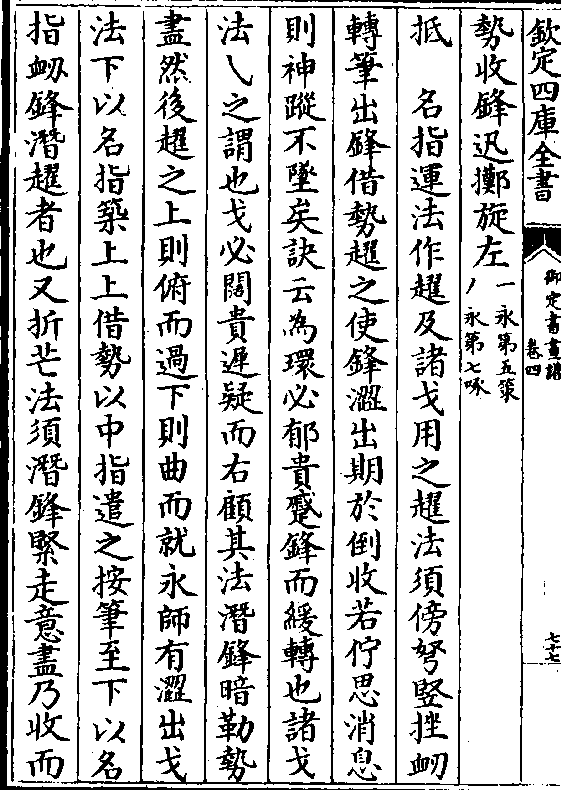 欽定四庫全書
御定書畫譜
卷四
七十七
勢收鋒迅擲旋左
一永第五策
丿永第七啄
抵　名指運法作趯及諸戈用之趯法須傍弩豎挫衂
轉筆出鋒借勢趯之使鋒澀出期於倒收若佇思消息
則神蹤不墜矣訣云為環必郁貴蹙鋒而緩轉也諸戈
法乀之謂也戈必闊貴遲疑而右顧其法潛鋒暗勒勢
盡然後趯之上則俯而過下則曲而就永師有澀出戈
法下以名指築上上借勢以中指遣之按筆至下以名
指衂鋒潛趯者也又折芒法須潛鋒緊走意盡乃收而